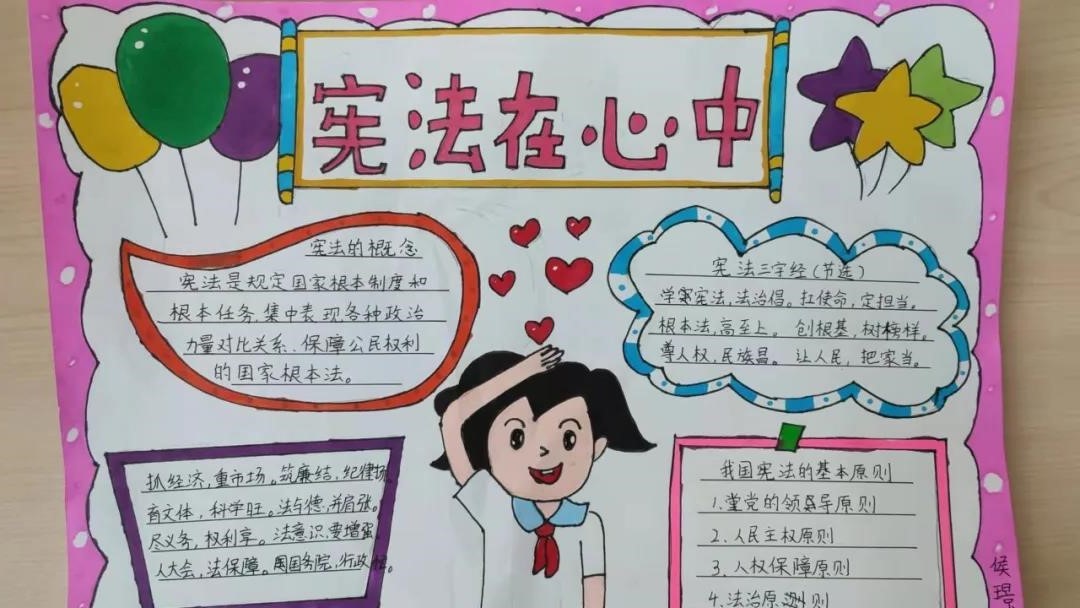 宪法在心中
宪法的概念
宪法是规定国家根本制度和
根本任务.集中表现各种政治
力量对比关系、保障公民权利
的国家根本法。
宪法三字经(节选)
学宪法,法治倡。扛使命,定担当。
根本法,高至上。创根基,树榜样。
尊人权,民族昌。让人民,把家当。
抓经济,重市场。筑廉结,纪律扬
育文体,科学旺。法与德,并肩张。
尽义务,权利享。法意识,要增强
人大会,法保障。国务院,行政
我国宪法的基本原则
1.党的领导原则
2.人民主权原则
3.人权保障原则
4.法治原则
侯